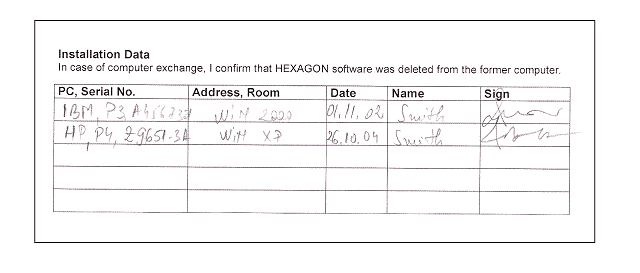 Installation Data
In case of computer exchange, I confirm that HEXAGON software was deleted from the former computer.
PC, Serial No. Address, Room Date Name Sign
IBM, P3, WiN 2000 01.11.02 Smith
HP, P4, Z9651-3A WiN XP 26.10.04 Smith